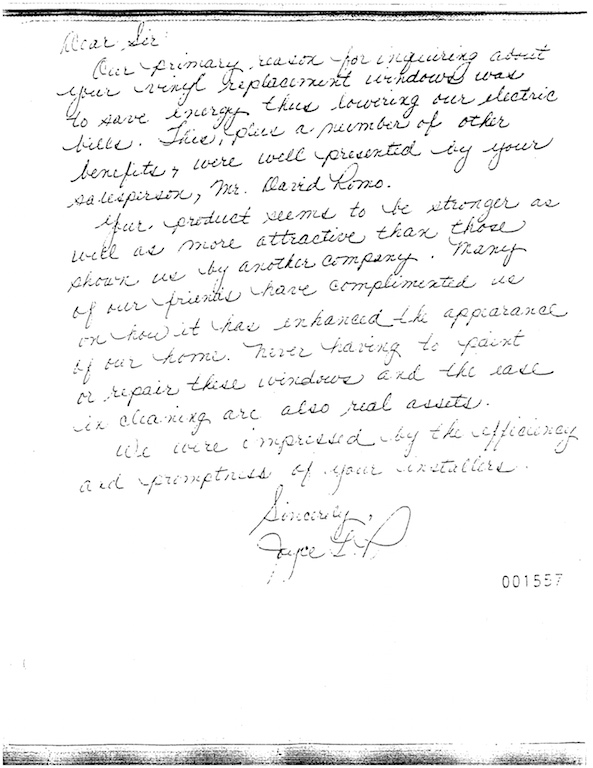 Dear Sir:
Our primary reason for inquiring about
your vinyl replacement windows was
to save energy thus lowering our electric
bills. This, plus a number of other
benefits, were well presented by your
salesperson, Mr. David Romo.
Your product seems to be stronger as
well as more attractive than those
shown us by another company. Many
of our friends have complimented us
on how it has enhanced the appearance
of our home. Never having to paint
or repair these windows and the ease
in cleaning are also real assets.
We were impressed by the efficiency
and promptness of your installers.
Sincerely,
Joyce
001557